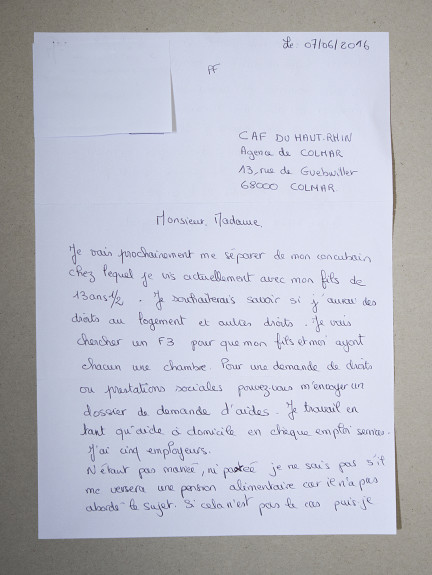 Le : 07/06/2016
PF
CAF DU HAUT-RHIN
Agence de COLMAR
13, rue de Guebwiller
68000 COLMAR
Monsieur, Madame,
Je vais prochainement me séparer de mon concubain
chez lequel je vis actuellement avec mon fils de
13 ans 1/2. Je souhaiterais savoir si j'aurai des
droits au logement et autres droits. Je vais
chercher un F3 pour que mon fils et moi ayont
chacun une chambre. Pour une demande de droits
ou prestations sociales pouvez-vous m'envoyer un
dossier de demande d'aides. Je travail en
tant qu'aide à domicile en chèque emploi service.
J'ai cinq employeurs.
N'étant pas mariée, ni je ne sais pas s'il
me versera une pension alimentaire car il n'a pas
abordé le sujet. Si cela n'est pas le cas puis-je